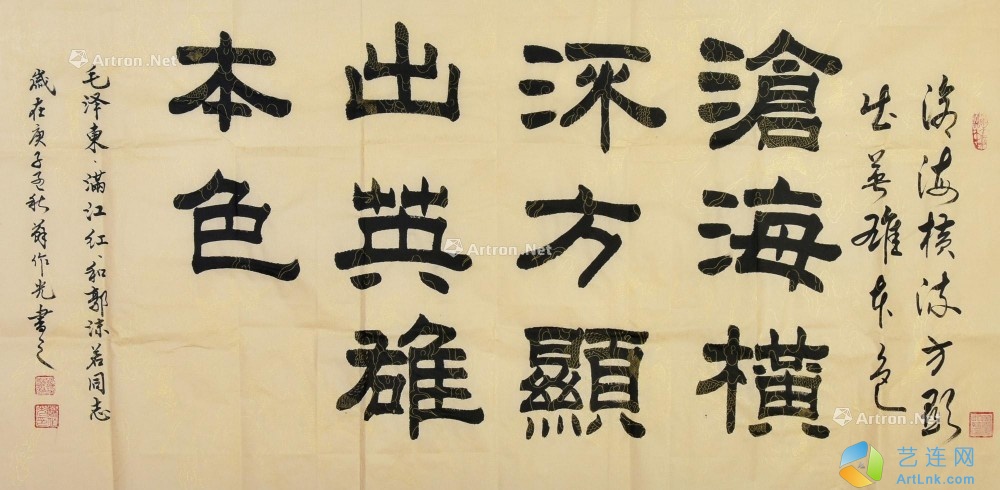 滄海横流方顯
出英雄本色
滄海橫
流方顯
出英雄
本色
毛泽東·滿江红·和郭沫若同志
歲在庚子孟秋作光書之
Artron.Net
Artron.Net
Artron.Net
Artron.Net
Artron.Net
艺连网
ArtLnk.com